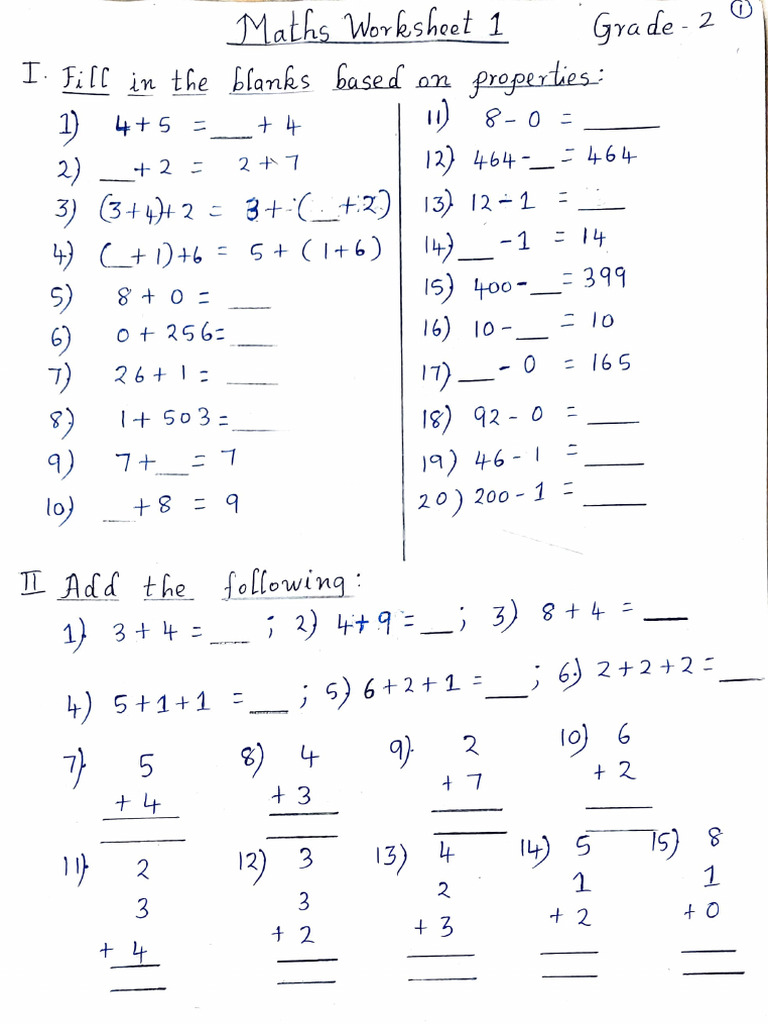 Maths Worksheet 1 Grade - 2 ①
I. Fill in the blanks based on properties:
1) 4+5 = __ + 4
2) __ + 2 = 2+7
3) (3+4)+2 = 3+(__+2)
4) (__+1)+6 = 5+(1+6)
5) 8+0 = __
6) 0+256= __
7) 26+1= __
8) 1+503= __
9) 7+__ = 7
10) __ +8 = 9
11) 8-0 = __
12) 464-__ = 464
13) 12-1 = __
14) __ -1 = 14
15) 400-__ = 399
16) 10-__ = 10
17) __ - 0 = 165
18) 92-0 = __
19) 46-1 = __
20) 200-1 = __
II Add the following:
1) 3+4 = __ ; 2) 4+9 = __ ; 3) 8+4 = __
4) 5+1+1 = __ ; 5) 6+2+1 = __ ; 6) 2+2+2 = __
7) 5
+ 4
8) 4
+ 3
9) 2
+ 7
10) 6
+ 2
11) 2
3
+ 4
12) 3
3
+ 2
13) 4
2
+ 3
14) 5
1
+ 2
15) 8
1
+ 0